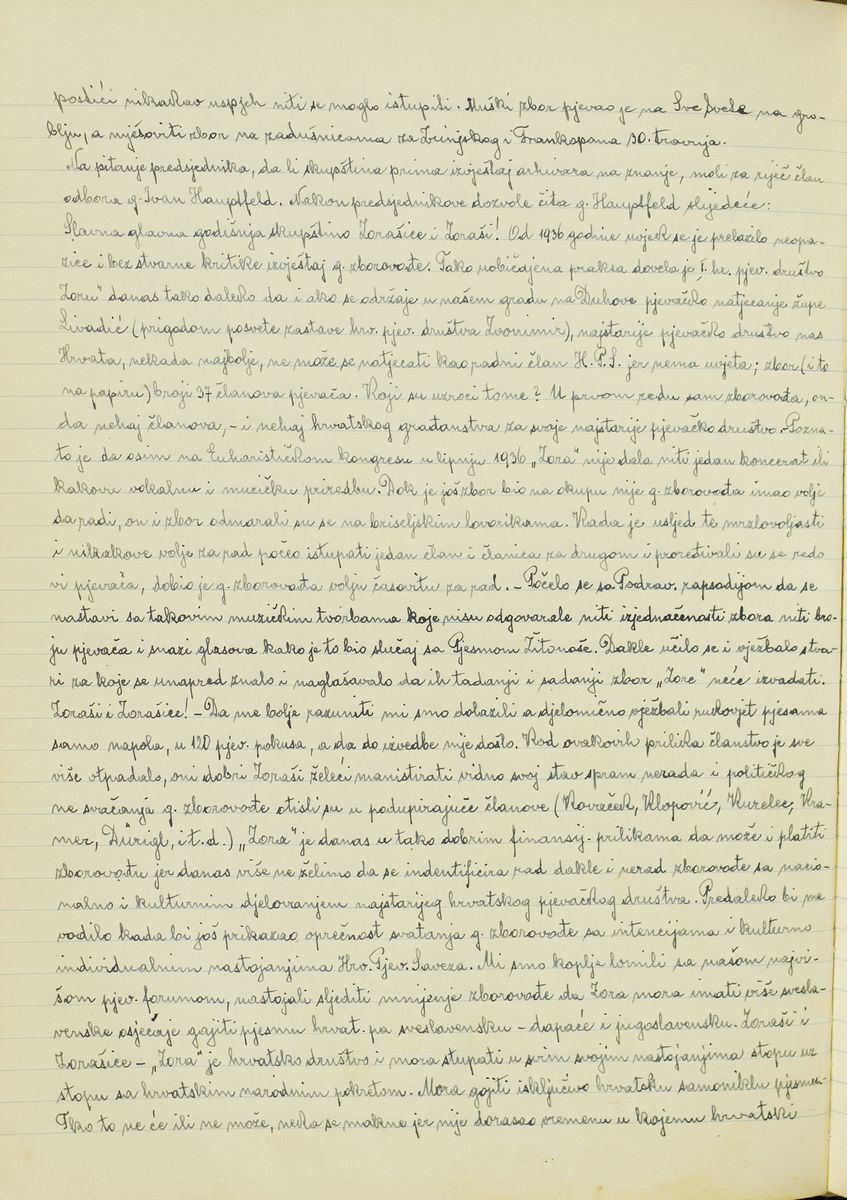 postići nikakav uspjeh niti se moglo istupiti. Muški zbor pjevao je na Sve Svete na gro-
blju, a mješoviti zbor na zadušnicama za Zrinjskog i Frankopana 30. travnja.
Na pitanje predsjednika, da li skupština prima izvještaj arhivara na znanje, moli za riječ član
odbora g. Ivan Hauptfeld. Nakon predsjednikove dozvole čita g. Hauptfeld slijedeće:
Slavna glavna godišnja skupštino Zorašice i Zoraši! Od 1936 godine uvjek se je prelazilo neopa-
zice i bez stvarne kritike izvještaj g. zborovođe. Tako uobičajena praksa dovela je I. hr. pjev. društvo
Zoru" danas tako daleko da i ako se održaje u našem gradu na Duhove pjevačko natjecanje župe
Livadić (prigodom posvete zastave hrv. pjev. društva Zvonimir), najstarije pjevačko društvo nas
Hrvata, nekada najbolje, ne može se natjecati kao radni član H.P.S. jer nema uvjeta; zbor (i to
na papiru) broji 37 članova pjevača. Koji su uzroci tome? U prvom redu sam zborovođa, on-
da nehaj članova, – i nehaj hrvatskog građanstva za svoje najstarije pjevačko društvo. – Pozna-
to je da osim na Euharističkom kongresu u lipnju 1936 „Zora" nije dala niti jedan koncerat ili
kakovu vokalnu i muzičku priredbu. Dok je još zbor bio na okupu nije g. zborovođa imao volje
da radi, on i zbor odmarali su se na briseljskim lovorikama. Kada je usljed te mrzlovoljasti
i nikakove volje za rad počeo istupati jedan član i članica za drugom i prorešivali su se redo
vi pjevača, dobio je g. zborovođa volju časovitu za rad. – Počelo se sa Podrav. rapsodijom da se
nastavi sa takovim muzičkim tvorbama koje nisu odgovarale niti izjednačenosti zbora niti bro-
ju pjevača i snazi glasova kako je to bio slučaj sa Pjesmom Žitonoše. Dakle učilo se i vježbalo stva-
ri za koje se unapred znalo i naglašavalo da ih tadanji i sadanji zbor „Zore" neće izvađati.
Zoraši i Zorašice! – Da me bolje razumiti mi smo dolazili a djelomično vježbali rukovjet pjesama
samo napola, u 120 pjev. pokusa, a da do izvedbe nije došlo. Kod ovakovih prilika članstvo je sve
više otpadalo, oni dobri Zoraši želeći manistirati vidno svoj stav spram nerada i političkog
ne svaćanja g. zborovođe otišli su u podupirajuće članove (Kovaček, Klopović, Kurelec, Kra-
mer, Dürigl, i t. d.) „Zora" je danas u tako dobrim finansij. prilikama da može i platiti
zborovođu jer danas više ne želimo da se indentificira rad dakle i nerad zborovođe sa nacio-
nalno i kulturnim djelovanjem najstarijeg hrvatskog pjevačkog društva. Predaleko bi me
vodilo kada bi još prikazao oprečnost svatanja g. zborovođe sa intencijama i kulturno
individualnim nastojanjima Hrv. Pjev. Saveza. Mi smo koplje lomili sa našom najvi-
šom pjev. forumom, nastojali sljediti mnijenje zborovođe da Zora mora imati više svesla-
venske osjećaje gajiti pjesmu hrvat. pa sveslavensku – dapače i jugoslavensku. Zoraši i
Zorašice – „Zora" je hrvatsko društvo i mora stupati u svim svojim nastojanjima stopu uz
stopu sa hrvatskim narodnim pokretom. Mora gojiti isključivo hrvatsku samoniklu pjesmu.
Tko to ne će ili ne može, neka se makne jer nije dorasao vremenu u kojemu hrvatski